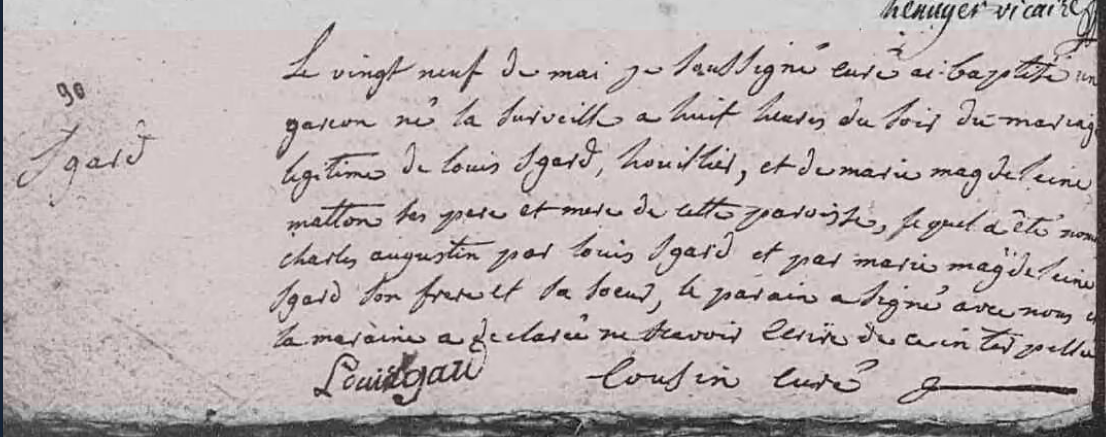 vicaire
90
Sgard
Le vingt neuf de mai je soussigné curé ai baptisé un
garcon né la surveille a huit heures du soir du mariag
legitime de louis Sgard, houillier, et de marie magdeleine
matton ses pere et mere de cette paroisse, lequel a été nom
charles augustin par louis Sgard et par marie magdeleine
Sgard son frere et sa soeur, le parain a signé avec nous
la maraine a declaré ne scavoir ecrire de ce interpellé
Louis Sgard Cousin curé